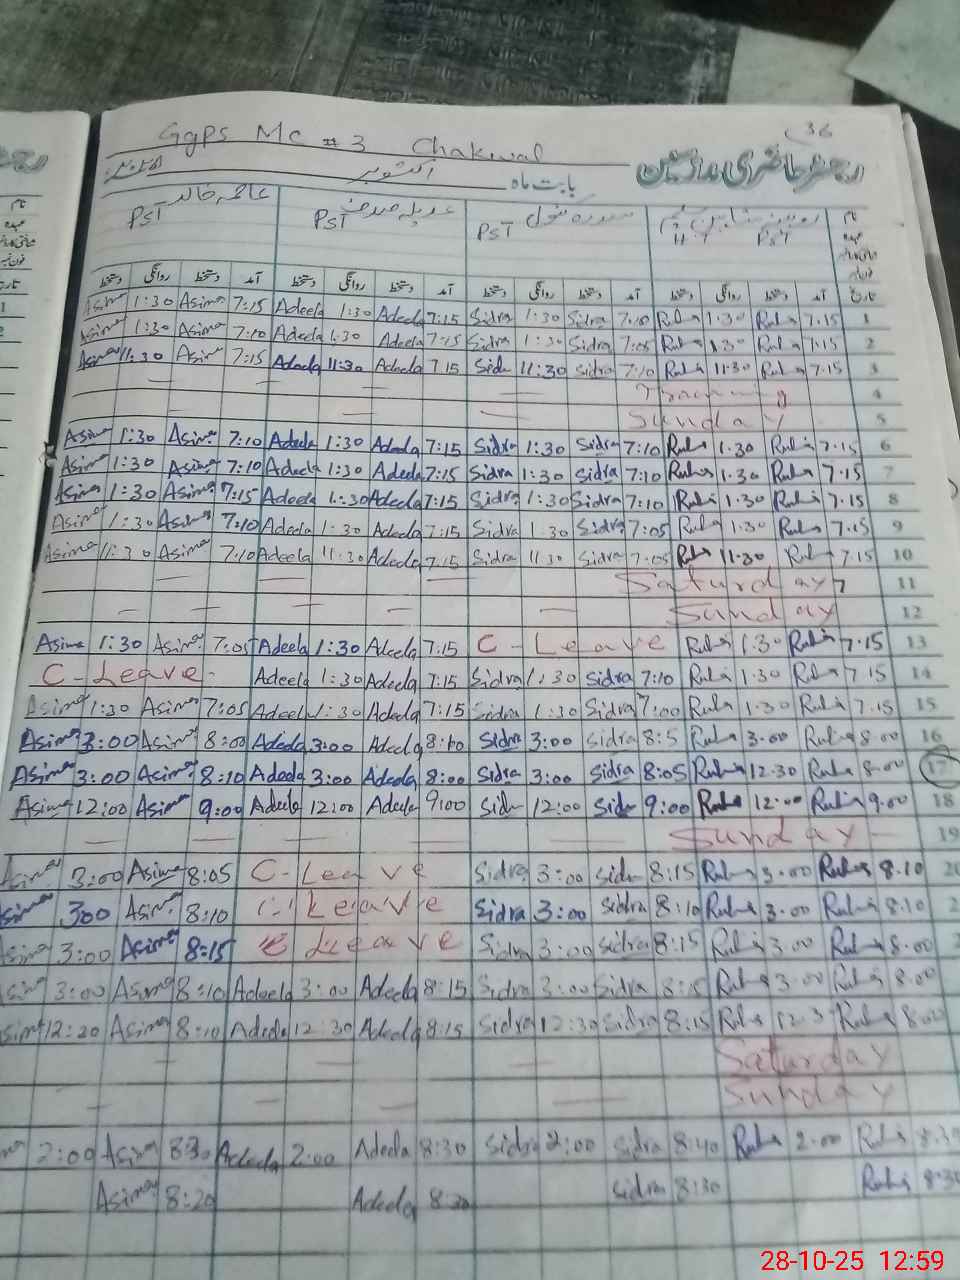 36
Ggps Mc # 3 Chakwal
رجسٹر حاضری مدرسین
بابت ماہ اکتوبر
عاصمہ خالد PST
عدیلہ PST
سدرہ بتول PST
PST
نام
عہدہ
تاریخ
دستخط روانگی دستخط آمد دستخط روانگی دستخط آمد دستخط روانگی دستخط آمد دستخط روانگی دستخط آمد
Asima 1:30 Asima 7:15 Adeela 1:30 Adeela 7:15 Sidra 1:30 Sidra 7:10 Rubi 1:30 Rubi 7.15 1
Asima 1:30 Asima 7:10 Adeela 1:30 Adeela 7:15 Sidra 1:30 Sidra 7:05 Rubi 1.30 Rubi 7.15 2
Asima 11:30 Asima 7:15 Adeela 11:30 Adeela 7.15 Sidra 11:30 Sidra 7:10 Rubi 11.30 Rubi 7.15 3
Training 4
Sunday 5
Asima 1:30 Asima 7:10 Adeela 1:30 Adeela 7:15 Sidra 1:30 Sidra 7:10 Rubi 1.30 Rubi 7.15 6
Asima 1:30 Asima 7:10 Adeela 1:30 Adeela 7:15 Sidra 1:30 Sidra 7:10 Rubi 1.30 Rubi 7.15 7
Asima 1:30 Asima 7:15 Adeela 1:30 Adeela 7:15 Sidra 1:30 Sidra 7:10 Rubi 1.30 Rubi 7.15 8
Asima 1:30 Asima 7:10 Adeela 1:30 Adeela 7:15 Sidra 1.30 Sidra 7:05 Rubi 1:30 Rubi 7.15 9
Asima 11:30 Asima 7:10 Adeela 11:30 Adeela 7.15 Sidra 11.30 Sidra 7:05 Rubi 11.30 Rubi 7.15 10
Saturday 11
Sunday 12
Asima 1:30 Asima 7:05 Adeela 1:30 Adeela 7:15 C - Leave Rubi 1.30 Rubi 7.15 13
C - Leave Adeela 1:30 Adeela 7:15 Sidra 1:30 Sidra 7:10 Rubi 1.30 Rubi 7.15 14
Asima 1:30 Asima 7:05 Adeela 1:30 Adeela 7:15 Sidra 1:30 Sidra 7:00 Rubi 1.30 Rubi 7.15 15
Asima 3:00 Asima 8:00 Adeela 3:00 Adeela 8:10 Sidra 3:00 Sidra 8:5 Rubi 3.00 Rubi 8.00 16
Asima 3:00 Asima 8:10 Adeela 3:00 Adeela 8:00 Sidra 3:00 Sidra 8:05 Rubi 12.30 Rubi 8.00 17
Asima 12:00 Asima 9:00 Adeela 12:00 Adeela 9:00 Sidra 12:00 Sidra 9:00 Rubi 12.00 Rubi 9.00 18
Sunday 19
Asima 3:00 Asima 8:05 C - Leave Sidra 3:00 Sidra 8:15 Rubi 3.00 Rubi 8.10 20
Asima 300 Asima 8:10 C - Leave Sidra 3:00 Sidra 8:10 Rubi 3.00 Rubi 8.10 2
Asima 3:00 Asima 8:15 C Leave Sidra 3:00 Sidra 8:15 Rubi 3.00 Rubi 8.00
Asima 3:00 Asima 8:10 Adeela 3:00 Adeela 8:15 Sidra 3:00 Sidra 8:15 Rubi 3.00 Rubi 8.00
Asima 12:20 Asima 8:10 Adeela 12:30 Adeela 8:15 Sidra 12:30 Sidra 8:15 Rubi 12.3 Rubi 8.00
Saturday
Sunday
2:00 Asima 830 Adeela 2:00 Adeela 8:30 Sidra 2:00 Sidra 8:40 Rubi 2.00 Rubi 8.30
Asima 8:20 Adeela 8:30 Sidra 8:30 Rubi 8:30
28-10-25 12:59